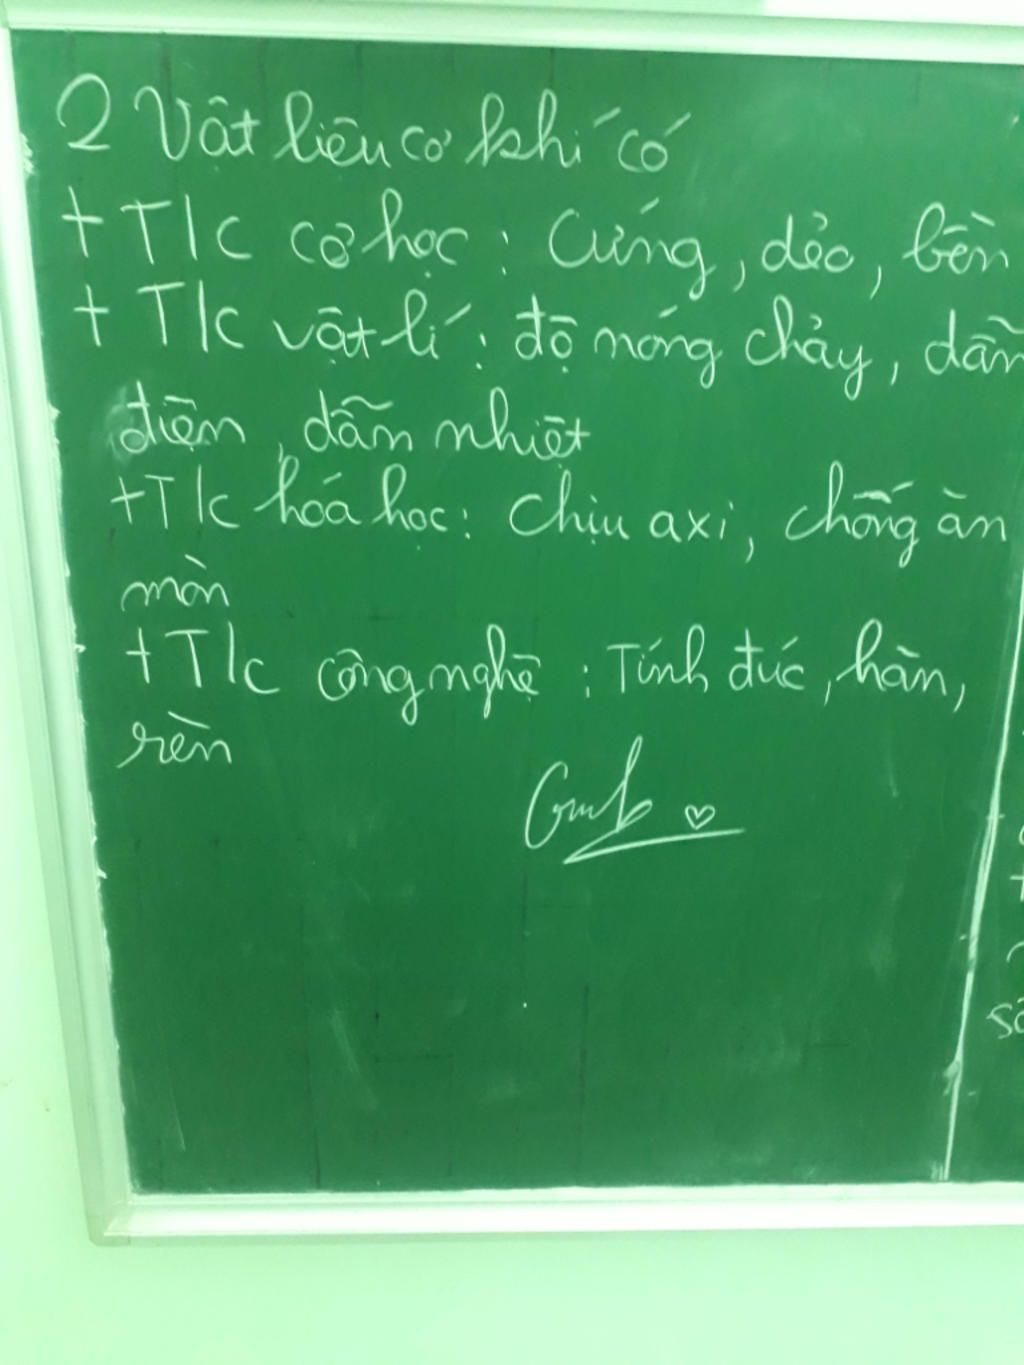 2 Vật liệu cơ khí có
+ T/c cơ học : Cứng, dẻo, bền
+ T/c vật lí : độ nóng chảy, dẫn
điện, dẫn nhiệt
+ T/c hóa học : chịu axi, chống ăn
mòn
+ T/c công nghệ : Tính đúc, hàn,
rèn